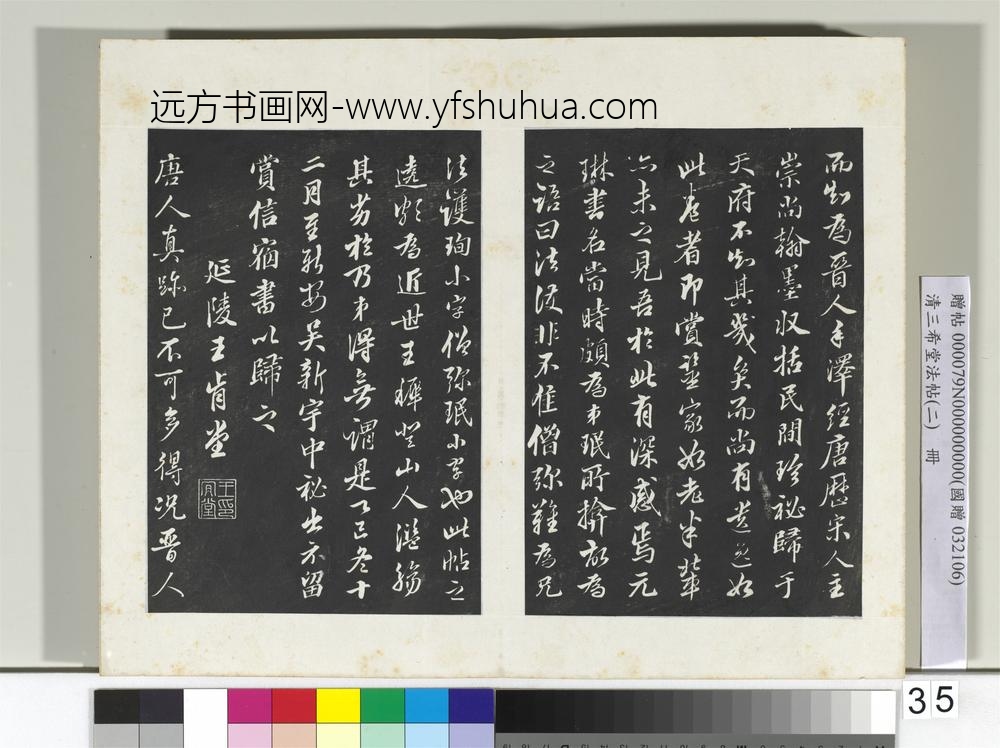 远方书画网-www.yfshuhua.com
而知為晉人手澤經唐歷宋人主
崇尚翰墨收括民間珍祕歸于
天府不知其幾矣而尚有遺逸如
此卷者即賞鑒家如老米輩
亦未之見吾於此有深感焉元
琳書名當時頗為弟珉所掩故為
之語曰法護非不佳僧彌難為兄
法護珣小字僧彌珉小字也此帖之
遠彪為近世王穉登山人濫觴
其劣於乃弟得無謂是乙巳冬十
二月至新安吳新宇中祕出示留
賞信宿書以歸之
延陵王肯堂
唐人真跡已不可多得況晉人
贈帖 000079N000000000(國贈 032106)
清三希堂法帖(二) 冊
35